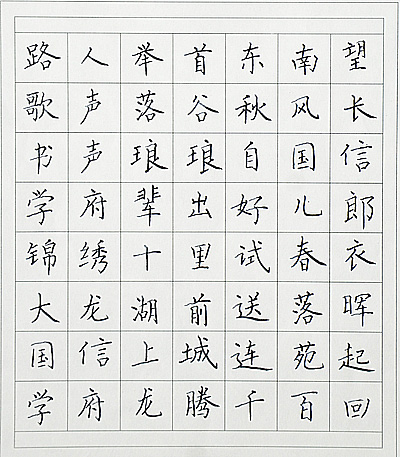 路人举首东南望
歌声落谷秋风长
书声琅琅自国信
学府辈出好儿郎
锦绣十里试春衣
大龙湖前送落晖
国信上城连苑起
学府龙腾千百回